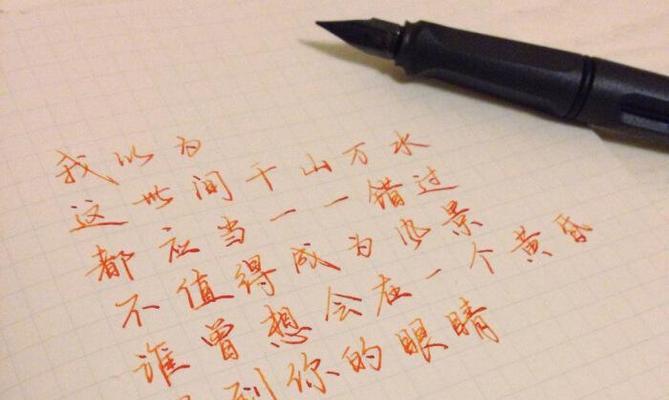 我以为
这世间千山万水
都应当一一错过
不值得成为风景
谁曾想会在一个黄昏
到你的眼睛